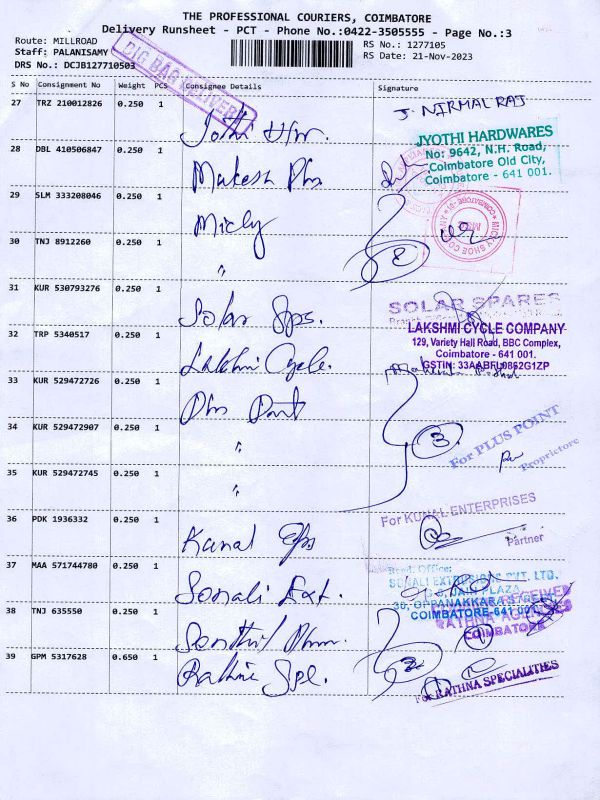 THE PROFESSIONAL COURIERS, COIMBATORE
Delivery Runsheet - PCT - Phone No.:0422-3505555 - Page No.:3
Route: MILLROAD
RS No.: 1277105
Staff: PALANISAMY
RS Date: 21-Nov-2023
DRS No.: DCJB127710503
BIG BAG DELIVERY
S No Consignment No Weight PCS Consignee Details Signature
27 TRZ 210012826 0.250 1
J. NIRMAL RAJ
Jothi H/w.
JYOTHI HARDWARES
No: 9642, N.H. Road,
Coimbatore Old City,
Coimbatore - 641 001.
28 DBL 410506847 0.250 1
Mukesh
29 SLM 333208046 0.250 1
Micky
MICKY SHOE COMPANY
COIMBATORE-01
30 TNJ 8912260 0.250 1
"
2
31 KUR 530793276 0.250 1
Solar Sps.
SOLAR SPARES
32 TRP 5340517 0.250 1
Lakshmi Cycle.
LAKSHMI CYCLE COMPANY
129, Variety Hall Road, BBC Complex,
Coimbatore - 641 001.
GSTIN: 33AABFU0862G1ZP
33 KUR 529472726 0.250 1
34 KUR 529472907 0.250 1
"
3
For PLUS POINT
Proprietore
35 KUR 529472745 0.250 1
"
36 PDK 1936332 0.250 1
For KUNAL ENTERPRISES
Partner
Kunal
37 MAA 571744780 0.250 1
Sonali Ext.
Regd. Office:
SONALI EXTRUSIONS PVT. LTD.
30, OPPANAKKARA STREET
COIMBATORE-641 001
38 TNJ 635550 0.250 1
Senthil
RATHNA AGENCIES
COIMBATORE
39 GPM 5317628 0.650 1
Rathna Spl.
2
For RATHNA SPECIALITIES